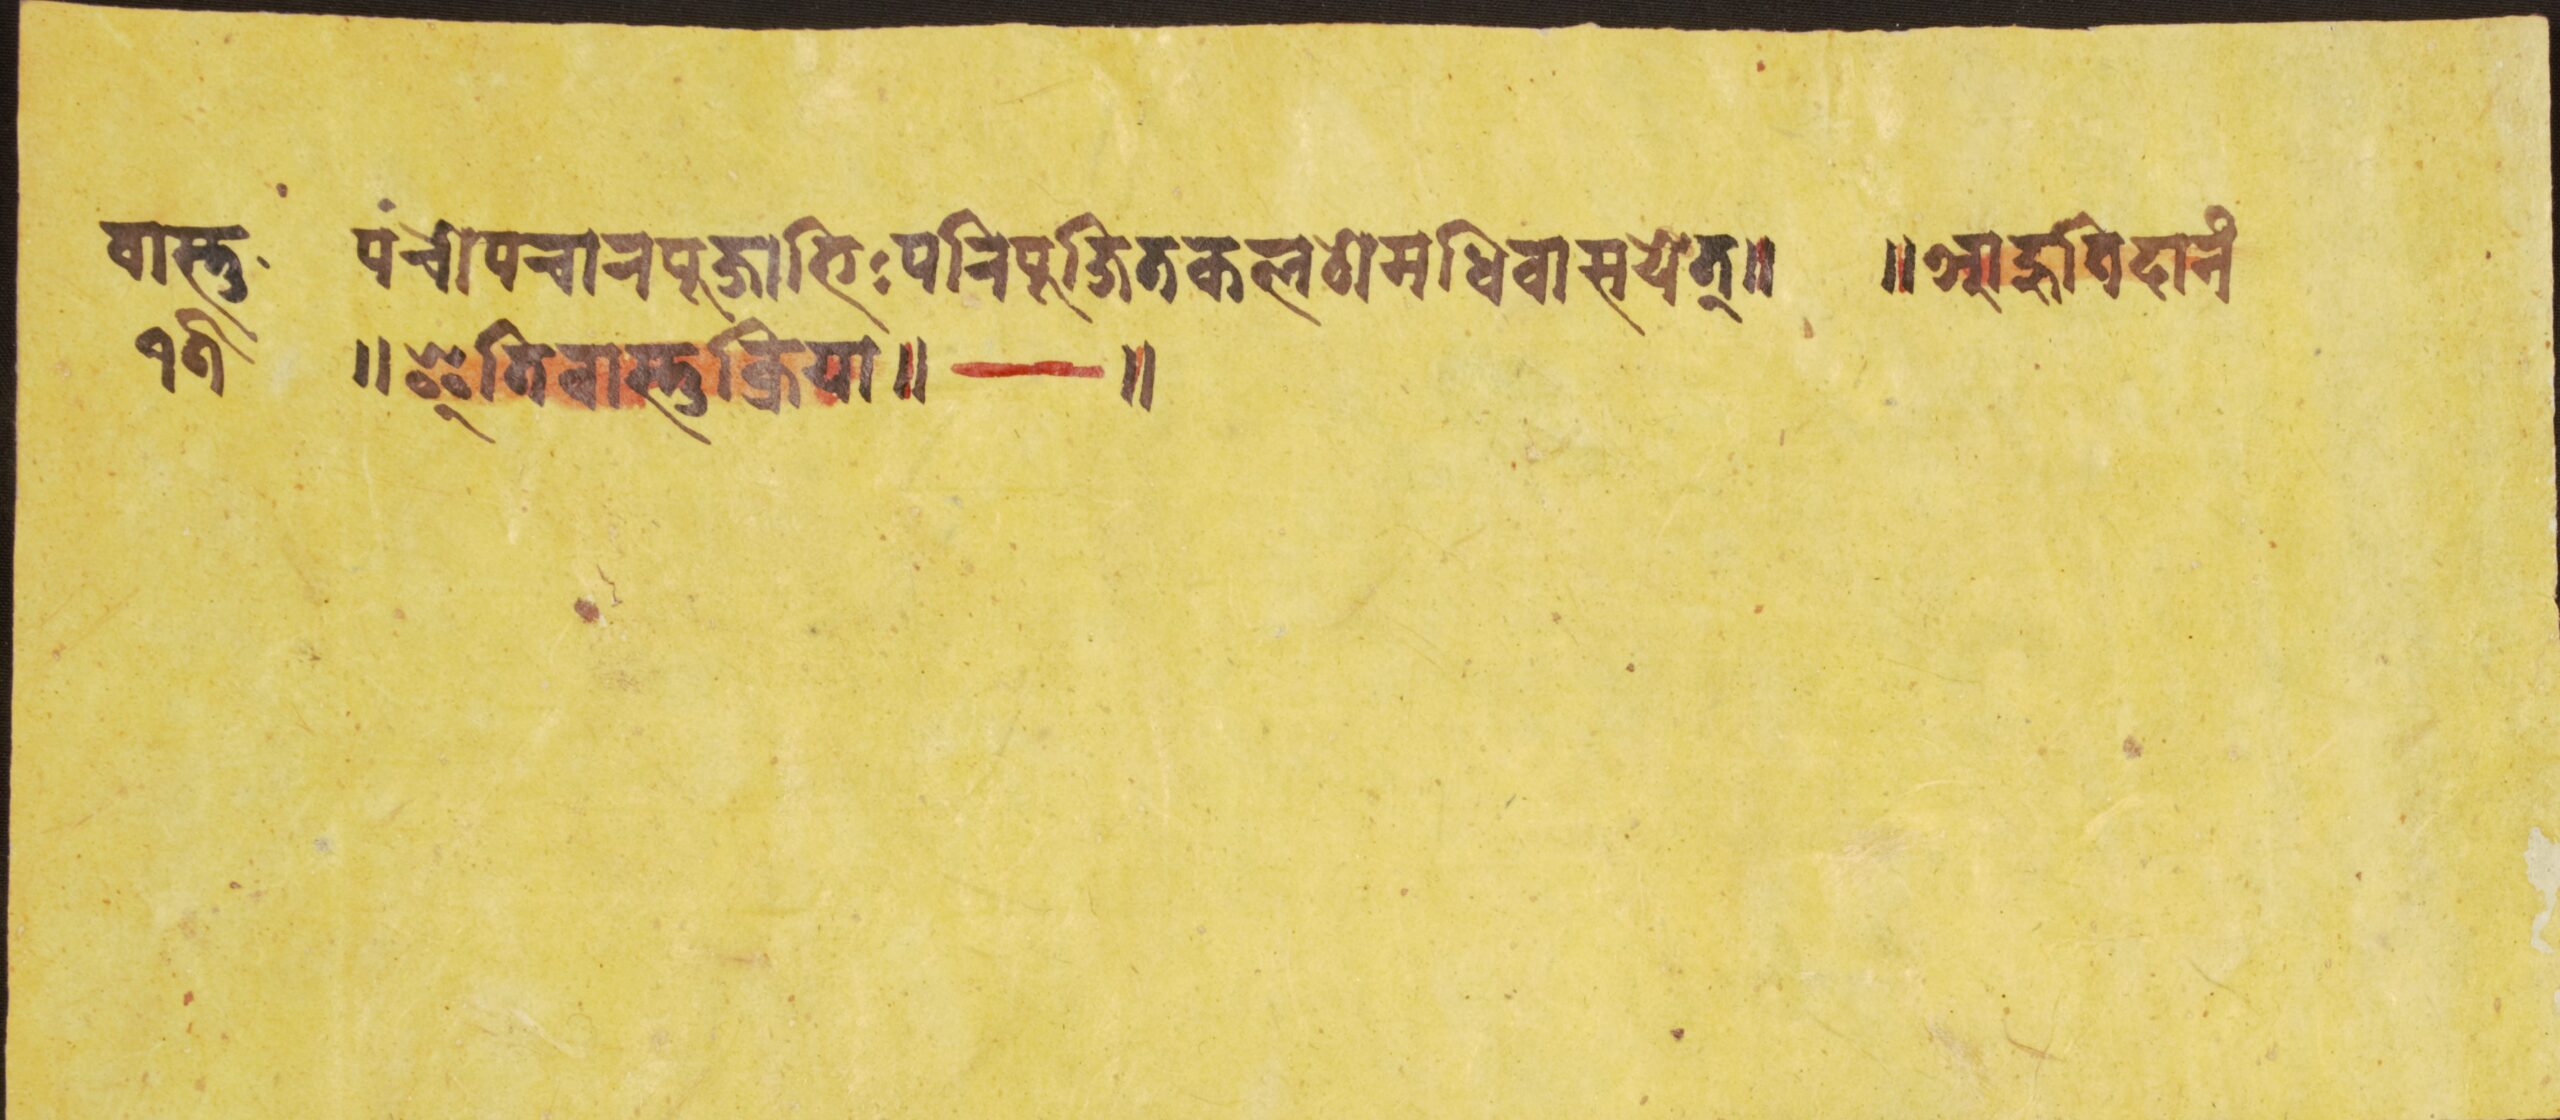 वास्तु पंचोपचारपूजाभिःपरिपूजितकलशेमधिवासयेत्॥ ॥आहुतिदानं
१९ ॥इतिवास्तुक्रिया॥ — ॥